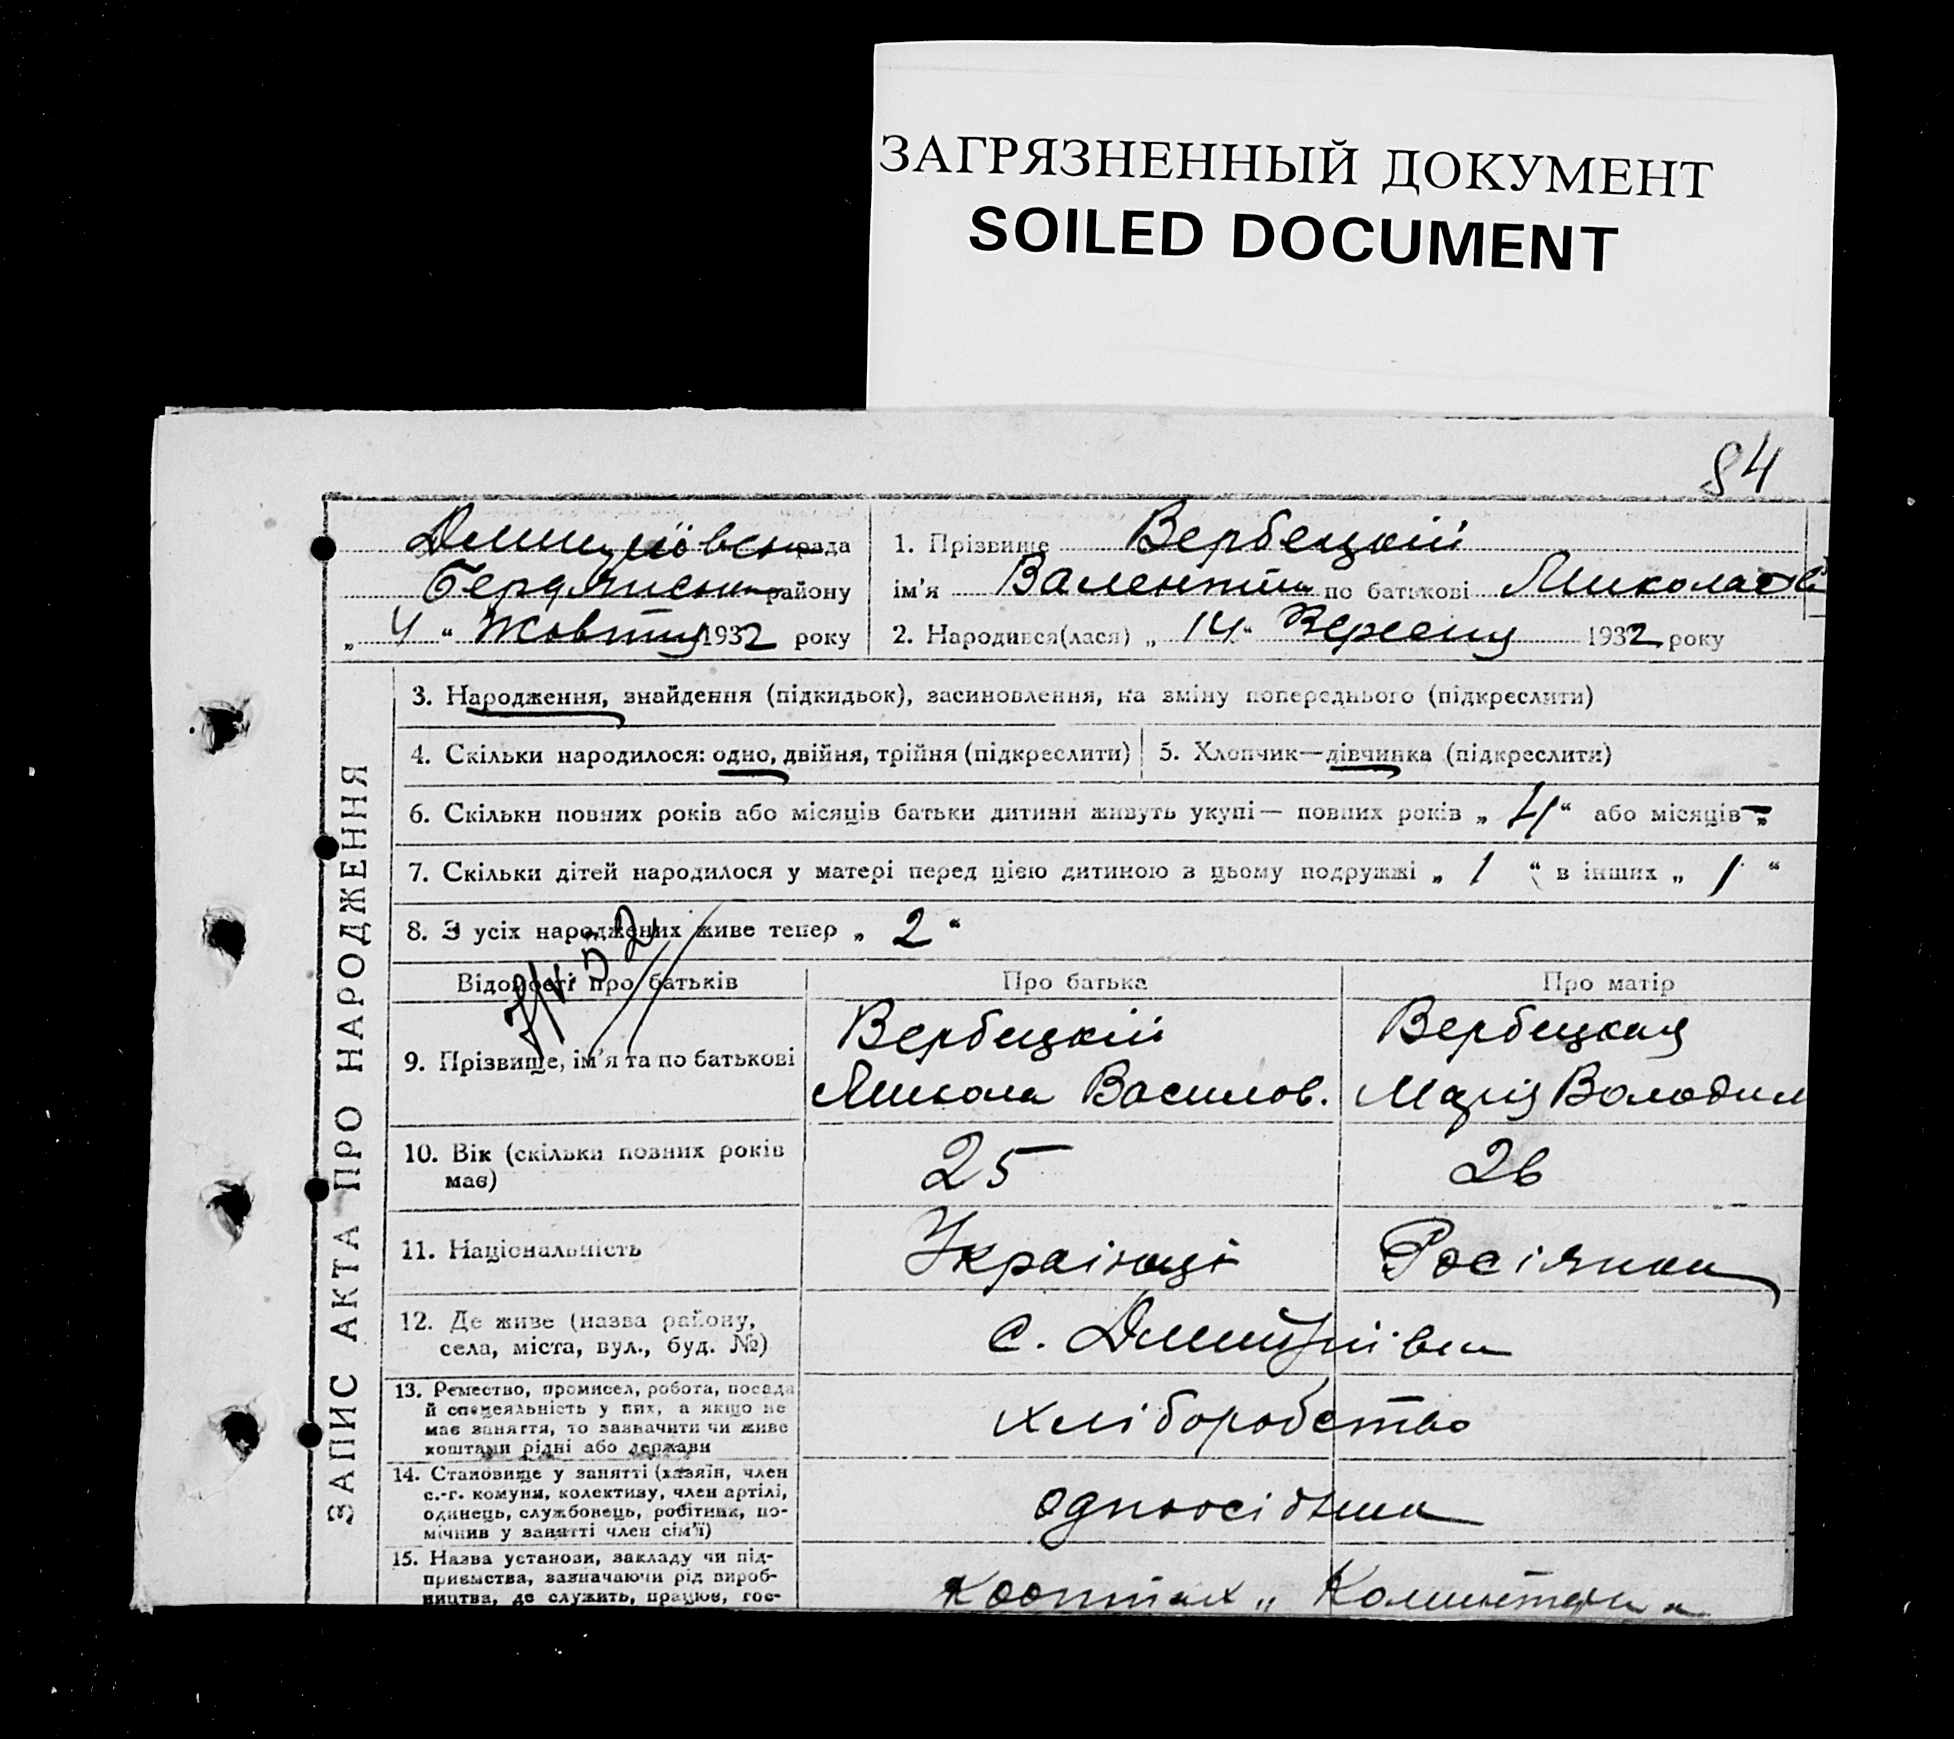 ЗАГРЯЗНЕННЫЙ ДОКУМЕНТ
SOILED DOCUMENT
84
Дмитрівська рада
Бердянськ району
„ 4 “ Жовтня 1932 року
1. Прізвище Вербецкій
ім'я Валентин по батькові Миколаєв
2. Народився(лася) „ 14 “ Вересня 1932 року
ЗАПИС АКТА ПРО НАРОДЖЕННЯ
3. Народження, знайдення (підкидьок), засиновлення, на зміну попереднього (підкреслити)
4. Скільки народилося: одно, двійня, трійня (підкреслити)
5. Хлопчик—дівчинка (підкреслити)
6. Скільки повних років або місяців батьки дитини живуть укупі — повних років „ 4 “ або місяців „ –
7. Скільки дітей народилося у матері перед цією дитиною в цьому подружжі „ 1 “ в інших „ 1 “
8. З усіх народжених живе тепер „ 2 “
Відомості про батьків
Про батька
Про матір
9. Прізвище, ім'я та по батькові
Вербецкій
Микола Василов.
Вербецкая
Марія Володим
10. Вік (скільки повних років
має)
25
26
11. Національність
Українці
Росіянка
12. Де живе (назва району,
села, міста, вул., буд. №)
с. Дмитрівка
13. Ремество, промисел, робота, посада
й спецеяльність у них, а якщо не
має заняття, то зазначити чи живе
коштами рідні або держави
хліборобство
14. Становище у занятті (хазяїн, член
с.-г. комуни, колективу, член артілі,
одинець, службовець, робітник, по-
мічник у занятті член сім'ї)
15. Назва установи, закладу чи під-
приємства, зазначаючи рід вироб-
ництва, де служить, працює, гос-